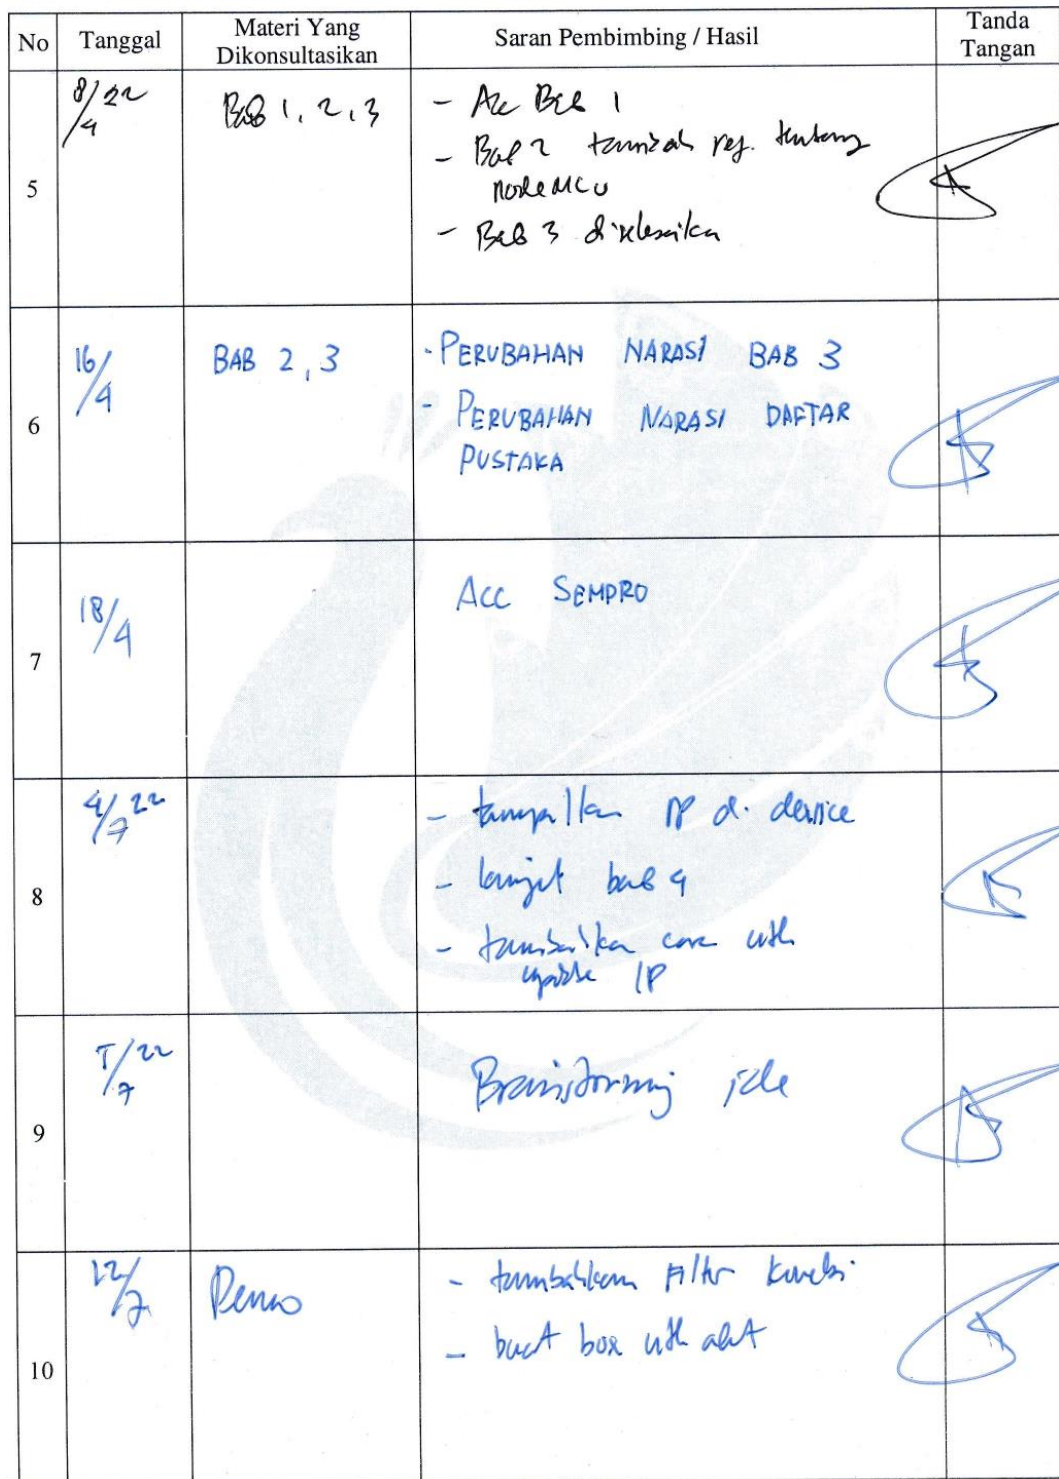 No Tanggal Materi Yang Dikonsultasikan Saran Pembimbing / Hasil Tanda Tangan
5 8/4 22 Bab 1, 2, 3 - Acc Bab 1
- Bab 2 tambah ref. tentang
nodeMCU
- Bab 3 diselesaikan
6 16/4 BAB 2, 3 - PERUBAHAN NARASI BAB 3
- PERUBAHAN NARASI DAFTAR
PUSTAKA
7 18/4 ACC SEMPRO
8 4/7 22 - tampilkan IP di device
- lanjut bab 4
- tambahkan cara utk
update IP
9 5/7 22 Brainstorming ide
10 12/7 Demo - tambahkan Filter koneksi
- buat box utk alat